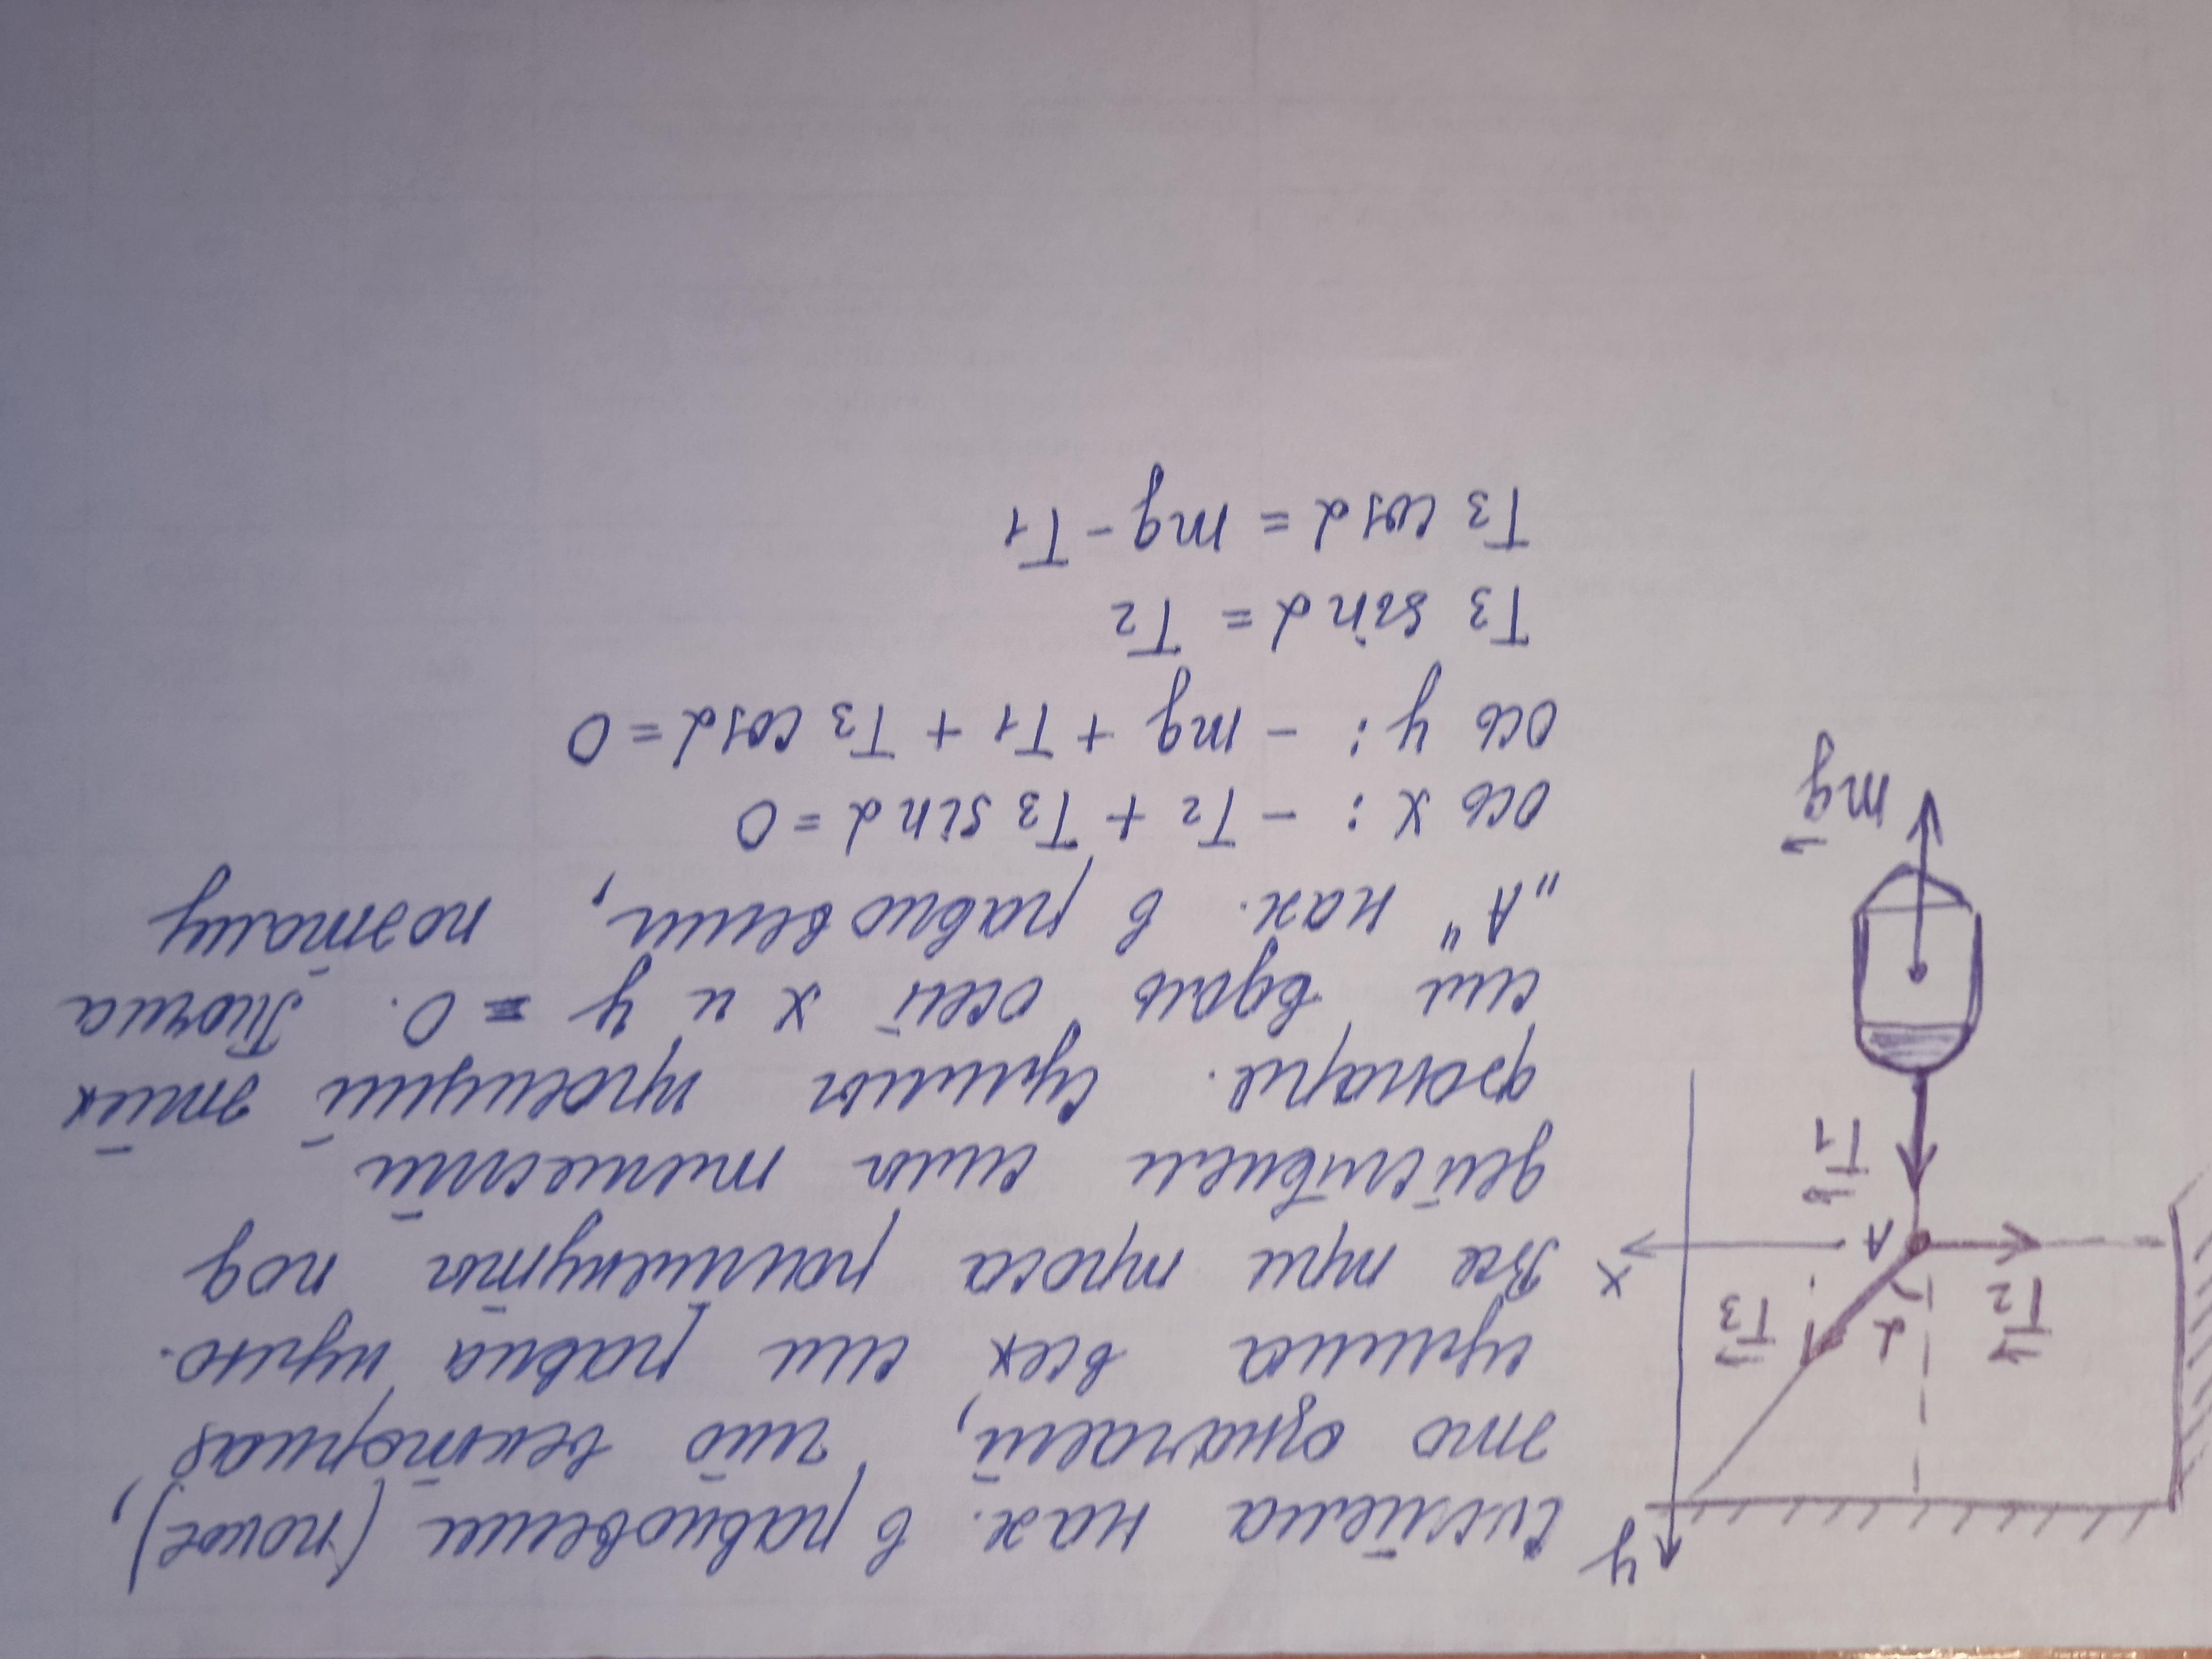 Система нах. в равновесии (покое),
это означает, что векторная
сумма всех сил равна нулю.
Все три троса растянуты под
действием силы тяжести
фонаря. Суммы проекций этих
сил вдоль осей x и y = 0. Точка
"А" нах. в равновесии, поэтому
ось x: - T2 + T3 sin α = 0
ось y: - mg + T1 + T3 cos α = 0
T3 sin α = T2
T3 cos α = mg - T1
y
α
T2
T3
x
A
T1
mg